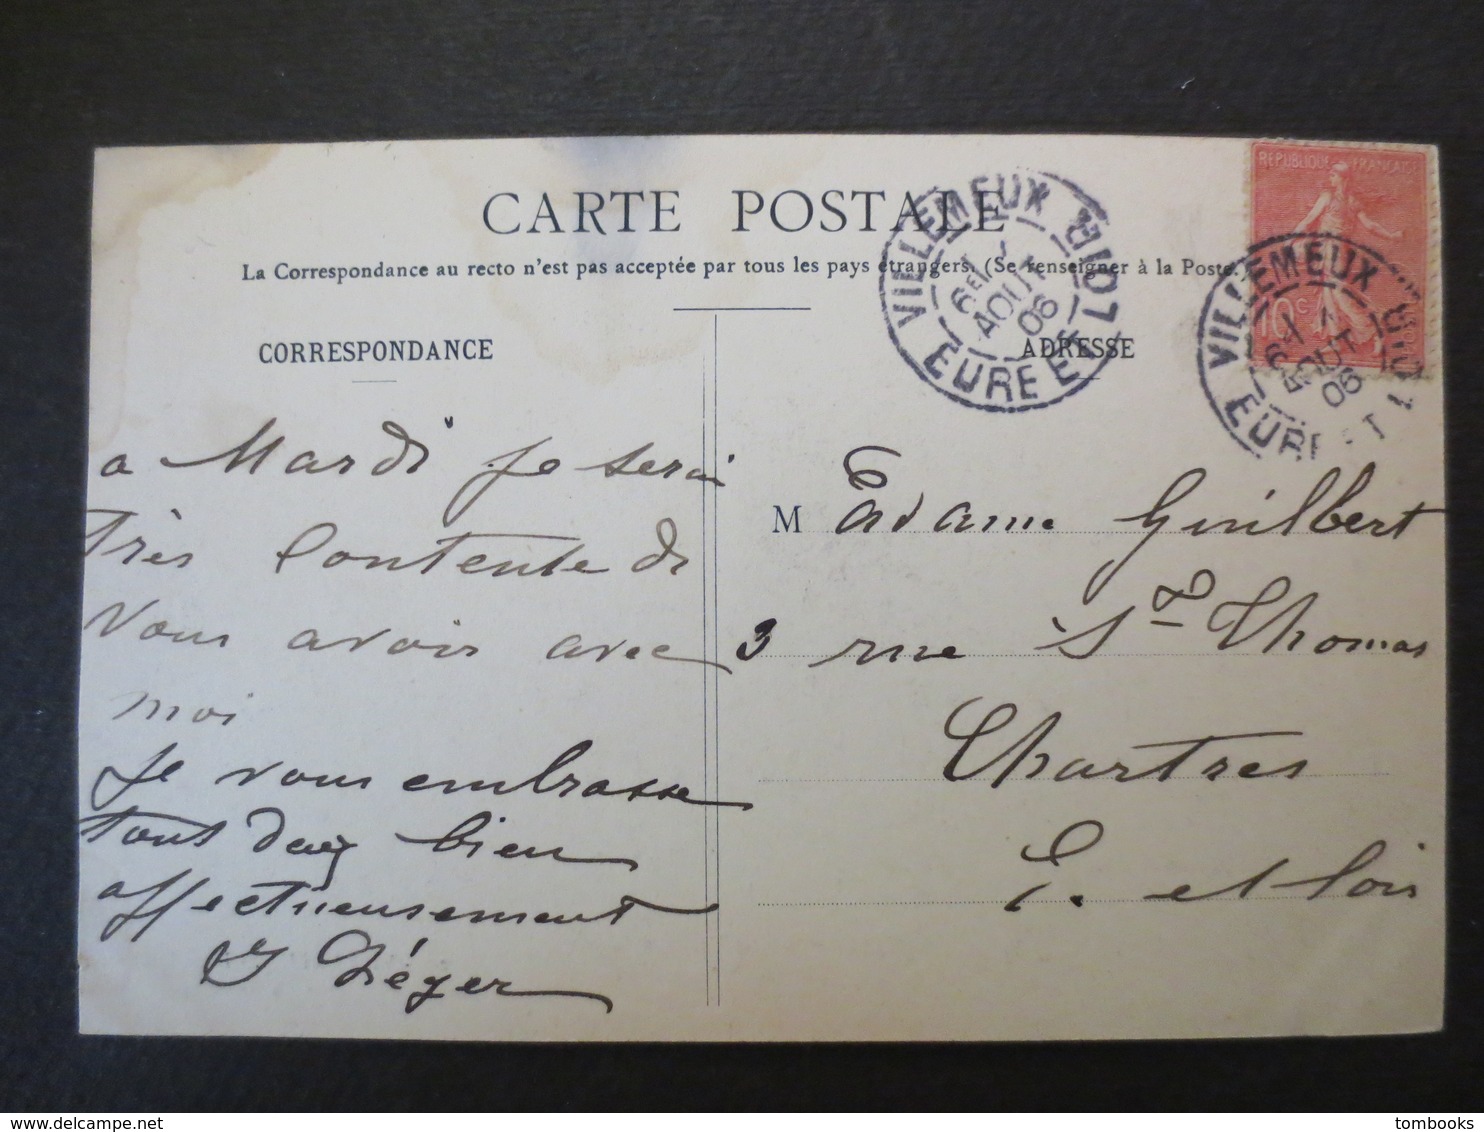 CARTE POSTALE
La Correspondance au recto n'est pas acceptée par tous les pays étrangers. (Se renseigner à la Poste.)
CORRESPONDANCE
ADRESSE
REPUBLIQUE FRANÇAISE
10c
VILLEMEUX
AOUT
06
EURE ET LOIR
VILLEMEUX
AOUT
06
EURE ET LOIR
a Mardi je serai
très contente de
vous avoir avec
moi
Je vous embrasse
tous deux bien
affectueusement
Léger
M adame Guilbert
3 rue St Thomas
Chartres
E. et Loir
delcampe.net
tombooks